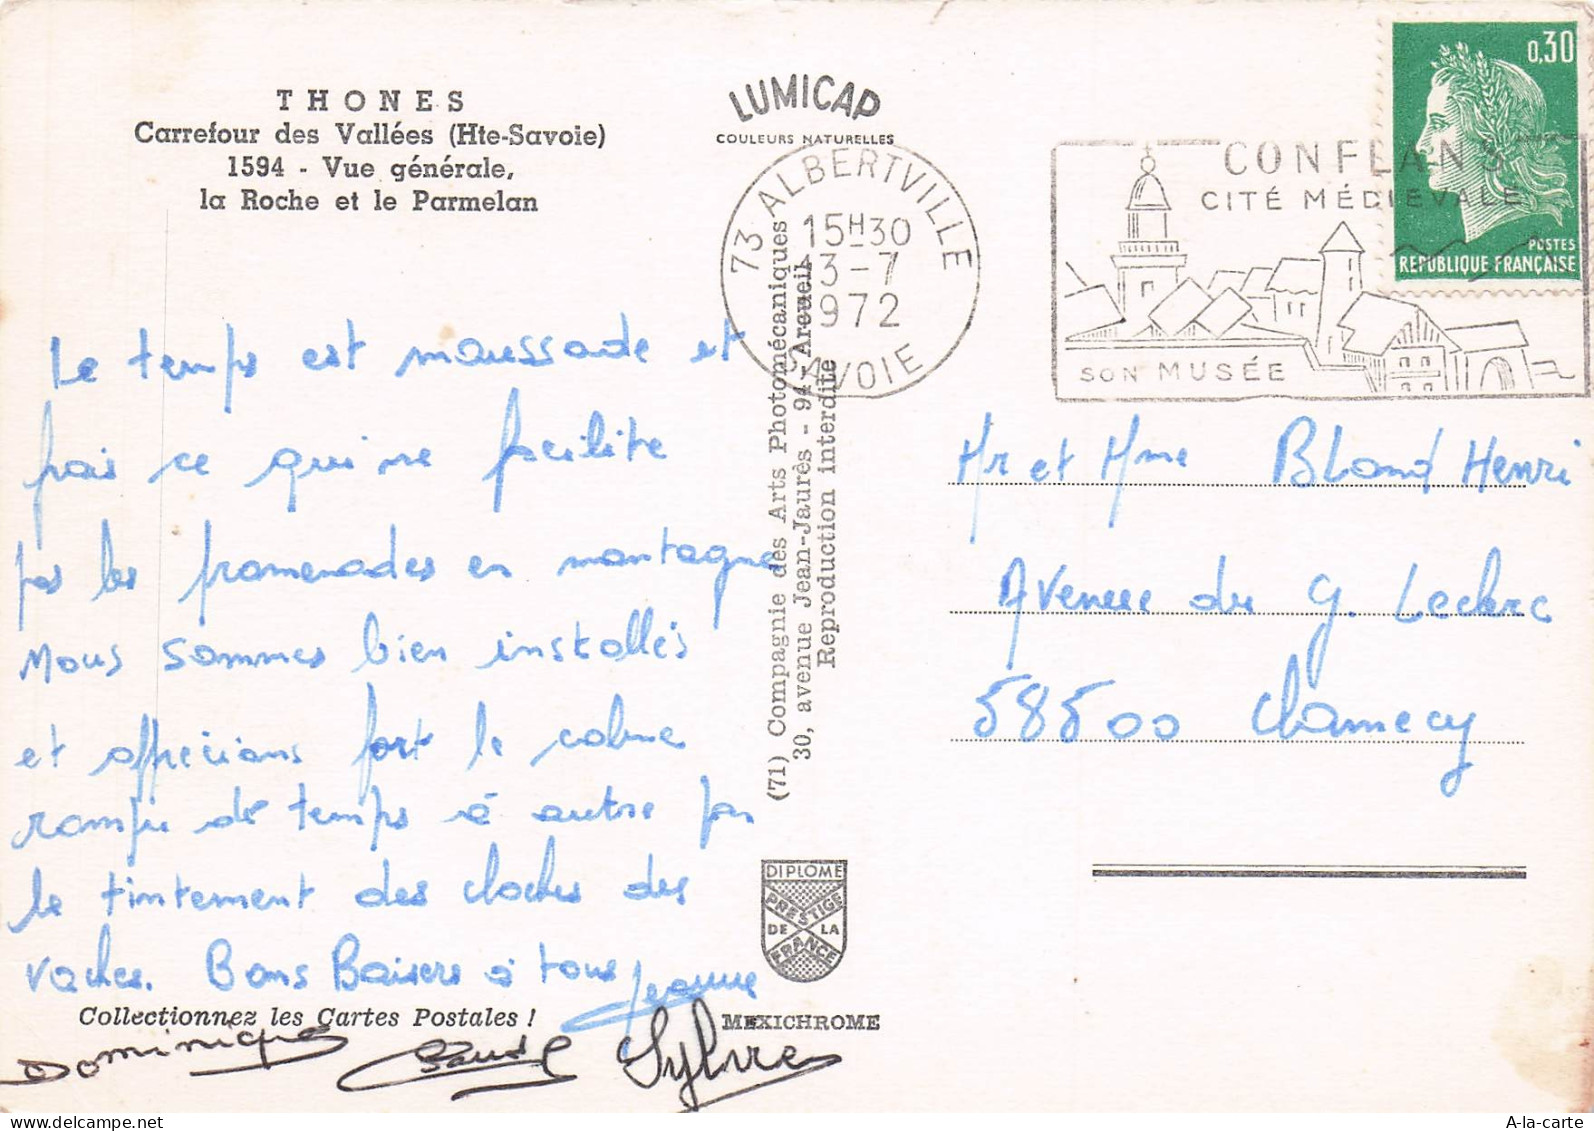 THONES
Carrefour des Vallées (Hte-Savoie)
1594 - Vue générale,
la Roche et le Parmelan
LUMICAP
COULEURS NATURELLES
73 ALBERTVILLE
15H30
13-7
1972
SAVOIE
CONFLANS
CITÉ MÉDIEVALE
SON MUSÉE
0,30
POSTES
REPUBLIQUE FRANÇAISE
Le temps est maussade et
frais ce qui ne facilite
pas les promenades en montagne
Nous sommes bien installés
et apprécions fort le calme
rompu de temps à autre par
le tintement des cloches des
vaches. Bons Baisers à tous
Jeanne
Dominique Claude Sylvie
(71) Compagnie des Arts Photomécaniques
30, avenue Jean-Jaurès - 94 - Arcueil
Reproduction interdite
Mr et Mme Bland Henri
Avenue du G. Leclerc
58500 Clamecy
DIPLOME
PRESTIGE
DE LA
FRANCE
Collectionnez les Cartes Postales !
MEXICHROME
A-la-carte